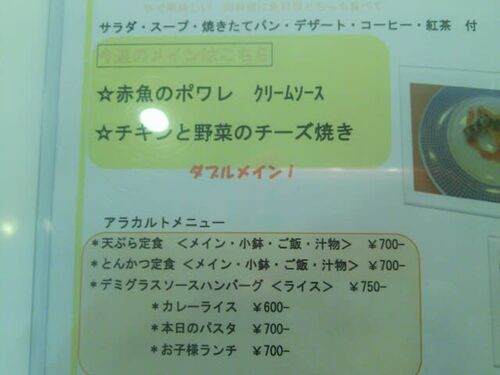 で美味しい 肉料理に魚料理どちらも食べて
サラダ・スープ・焼きたてパン・デザート・コーヒー・紅茶 付
今週のメインはこちら
☆赤魚のポワレ クリームソース
☆チキンと野菜のチーズ焼き
ダブルメイン！
アラカルトメニュー
＊天ぷら定食 ＜メイン・小鉢・ご飯・汁物＞ ￥700-
＊とんかつ定食 ＜メイン・小鉢・ご飯・汁物＞ ￥700-
＊デミグラスソースハンバーグ ＜ライス＞ ￥750-
＊カレーライス ￥600-
＊本日のパスタ ￥700-
＊お子様ランチ ￥700-